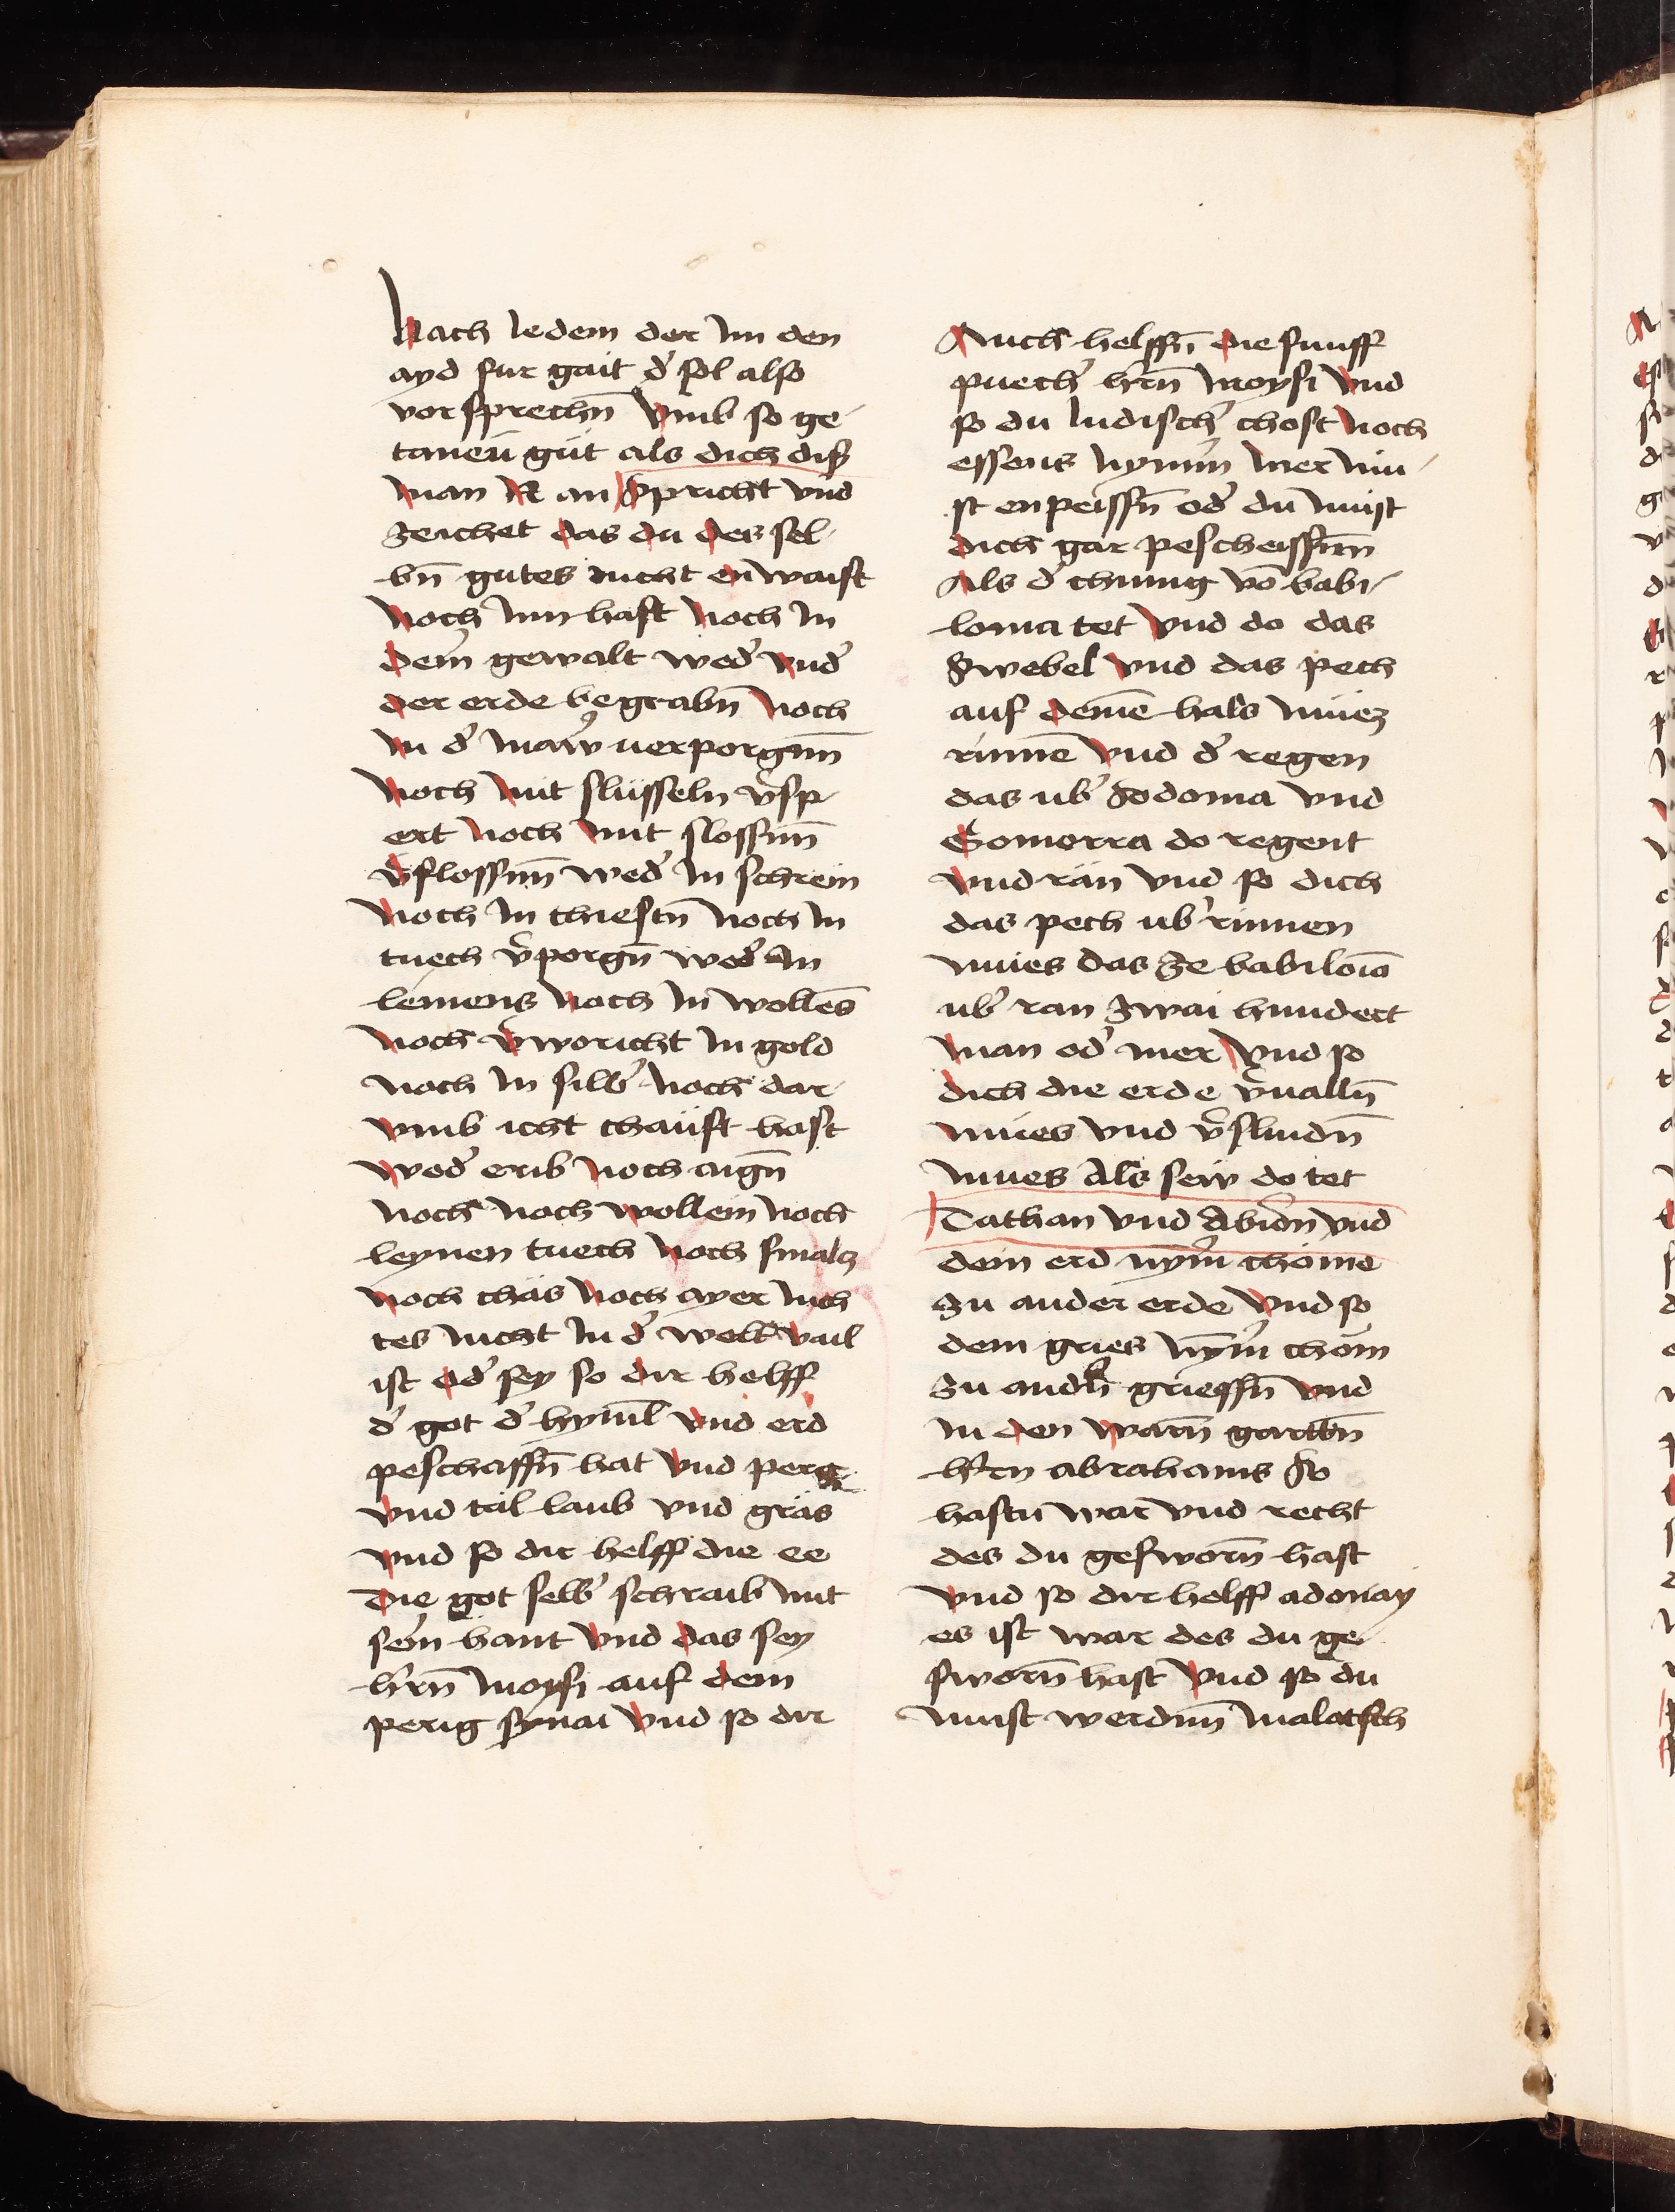 Nach Iedem der Im den
ayd fur gait d' sol also
vor sprechn̄ Vmb so ge-
taneu gůt als dich diß
man N an spricht vnd
zeichet das du des sel-
bn̄ gutes nicht en waist
Noch Inn hast Noch In
dein̄ gewalt wed' vnd'
der erde begrabn̄ Noch
In d' maẅr uerporgnn̄
Noch mit slüsseln v'sp-
ert Noch mit slossnn̄
v'slossnn̄ wed' In schrein
Noch In chiestn̄ Noch In
tuech v'porgn̄ wed' In
leinens Noch In wolles
Noch v'woricht In gold
Noch In silb' Noch dar-
vmb icht chaüfst hast
Wed' erib Noch aign̄
Noch Noch wollein Noch
leynen tuech Noch smalz
Noch chäs Noch ayer nich
tes nicht In d' welt vail
ist od' sey so dir helff
d' got d' hyml vnd erd
peschaffn̄ hat Vnd perg
vnd täl laub vnd gräs
vnd so dir helff die ee
Die got selb' schraib mit
sein̄ hant Vnd das sey
h'rn̄ Moysi auf dem
perig synai Vnd so dir
Auch helffn̄ die funff
puech' h'rn̄ Moysi Vnd
so du Iudisch' chost Noch
essens Nym̄m' Mer mu-
st enpeissn̄ od' du must
dich gar pescheissnn̄
Als d' chunig vō babi-
lonia tet Vnd do das
Swebel Vnd das pech
auf deinē hals müez
rinnē Vnd d' regen
das ub' Sodoma vnd
Gomorra do regent
vnd rän vnd so dich
das pech ub' rinnen
mües das ze babiloia
ub' ran zwai hundert
Man od' mer Vnd so
dich die erde v'ualln̄
mües vnd v'slindn̄
mues Als seiw do tet
Tathan vnd Abirōn vnd
dein erd nym̄' chöme
zu ander erde Vnd so
dein gries Nȳm' chöm
zu andn̄ griessn̄ vnd
In den warn̄ gartn̄
h'rn abrahams So
hastu war vnd recht
des du gesworn̄ hast
Vnd so dir helff adonay
es ist war des du ge-
sworn̄ hast Vnd so du
Must werdnn̄ Malatsch